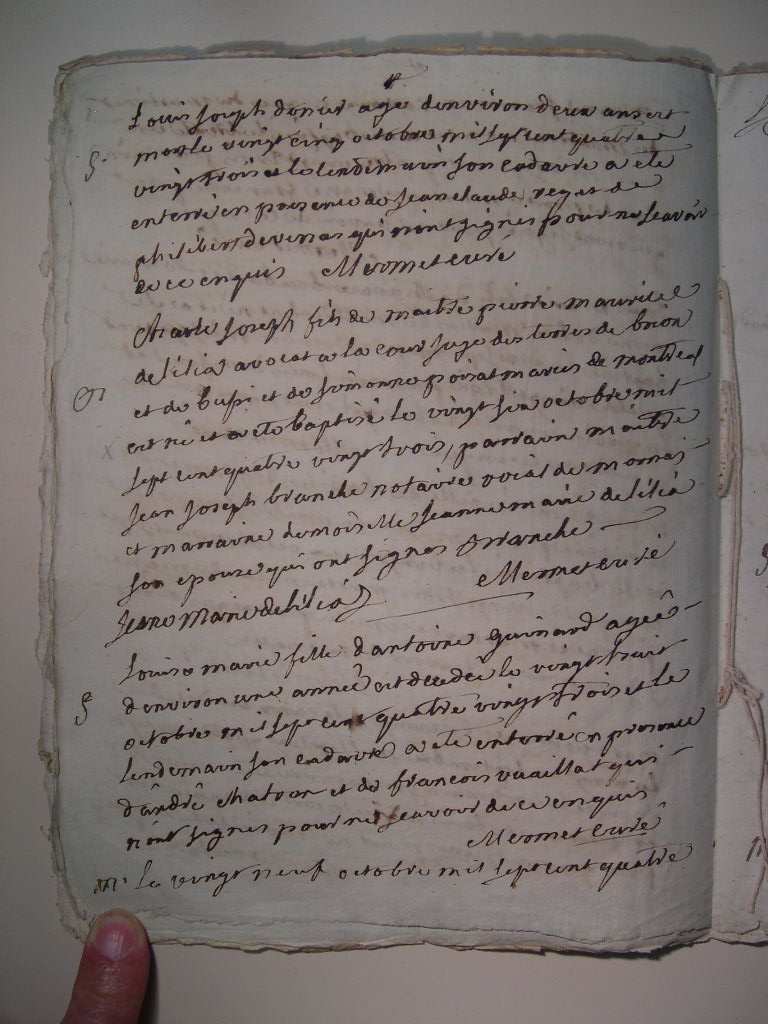 Louis Joseph donier agé denviron deux ans est
S. mort le vingt cinq octobre mil sept cent quatre
vingt trois et le lendemain son cadavre a eté
enterré en presence de Jean claude rey et de
philibert devenas qui n'ont signes pour ne sçavoir
de ce enquis Mermet curé
Charle Joseph fils de maitre pierre maurice
delilia avocat a la cour juge des terres de brion
B et de bussi et de simonne poisat maries de montreal
est né et a eté baptisé le vingt six octobre mil
sept cent quatre vingt trois, parrain maitre
Jean Joseph branche notaire roial de
et marraine demoiselle Jeanne marie delilia
son epouse qui ont signes Branche
Jeane Marie delilia Mermet curé
Louise marie fille d'antoine guinard agée
S denviron une année est decedée le vingt huit
octobre mil sept cent quatre vingt trois et le
lendemain son cadavre a eté enterré en presence
d'andré chatron et de francois vuaillat qui
n'ont signes pour ne sçavoir de ce enquis
Mermet curé
m. Le vingt neuf octobre mil sept cent quatre